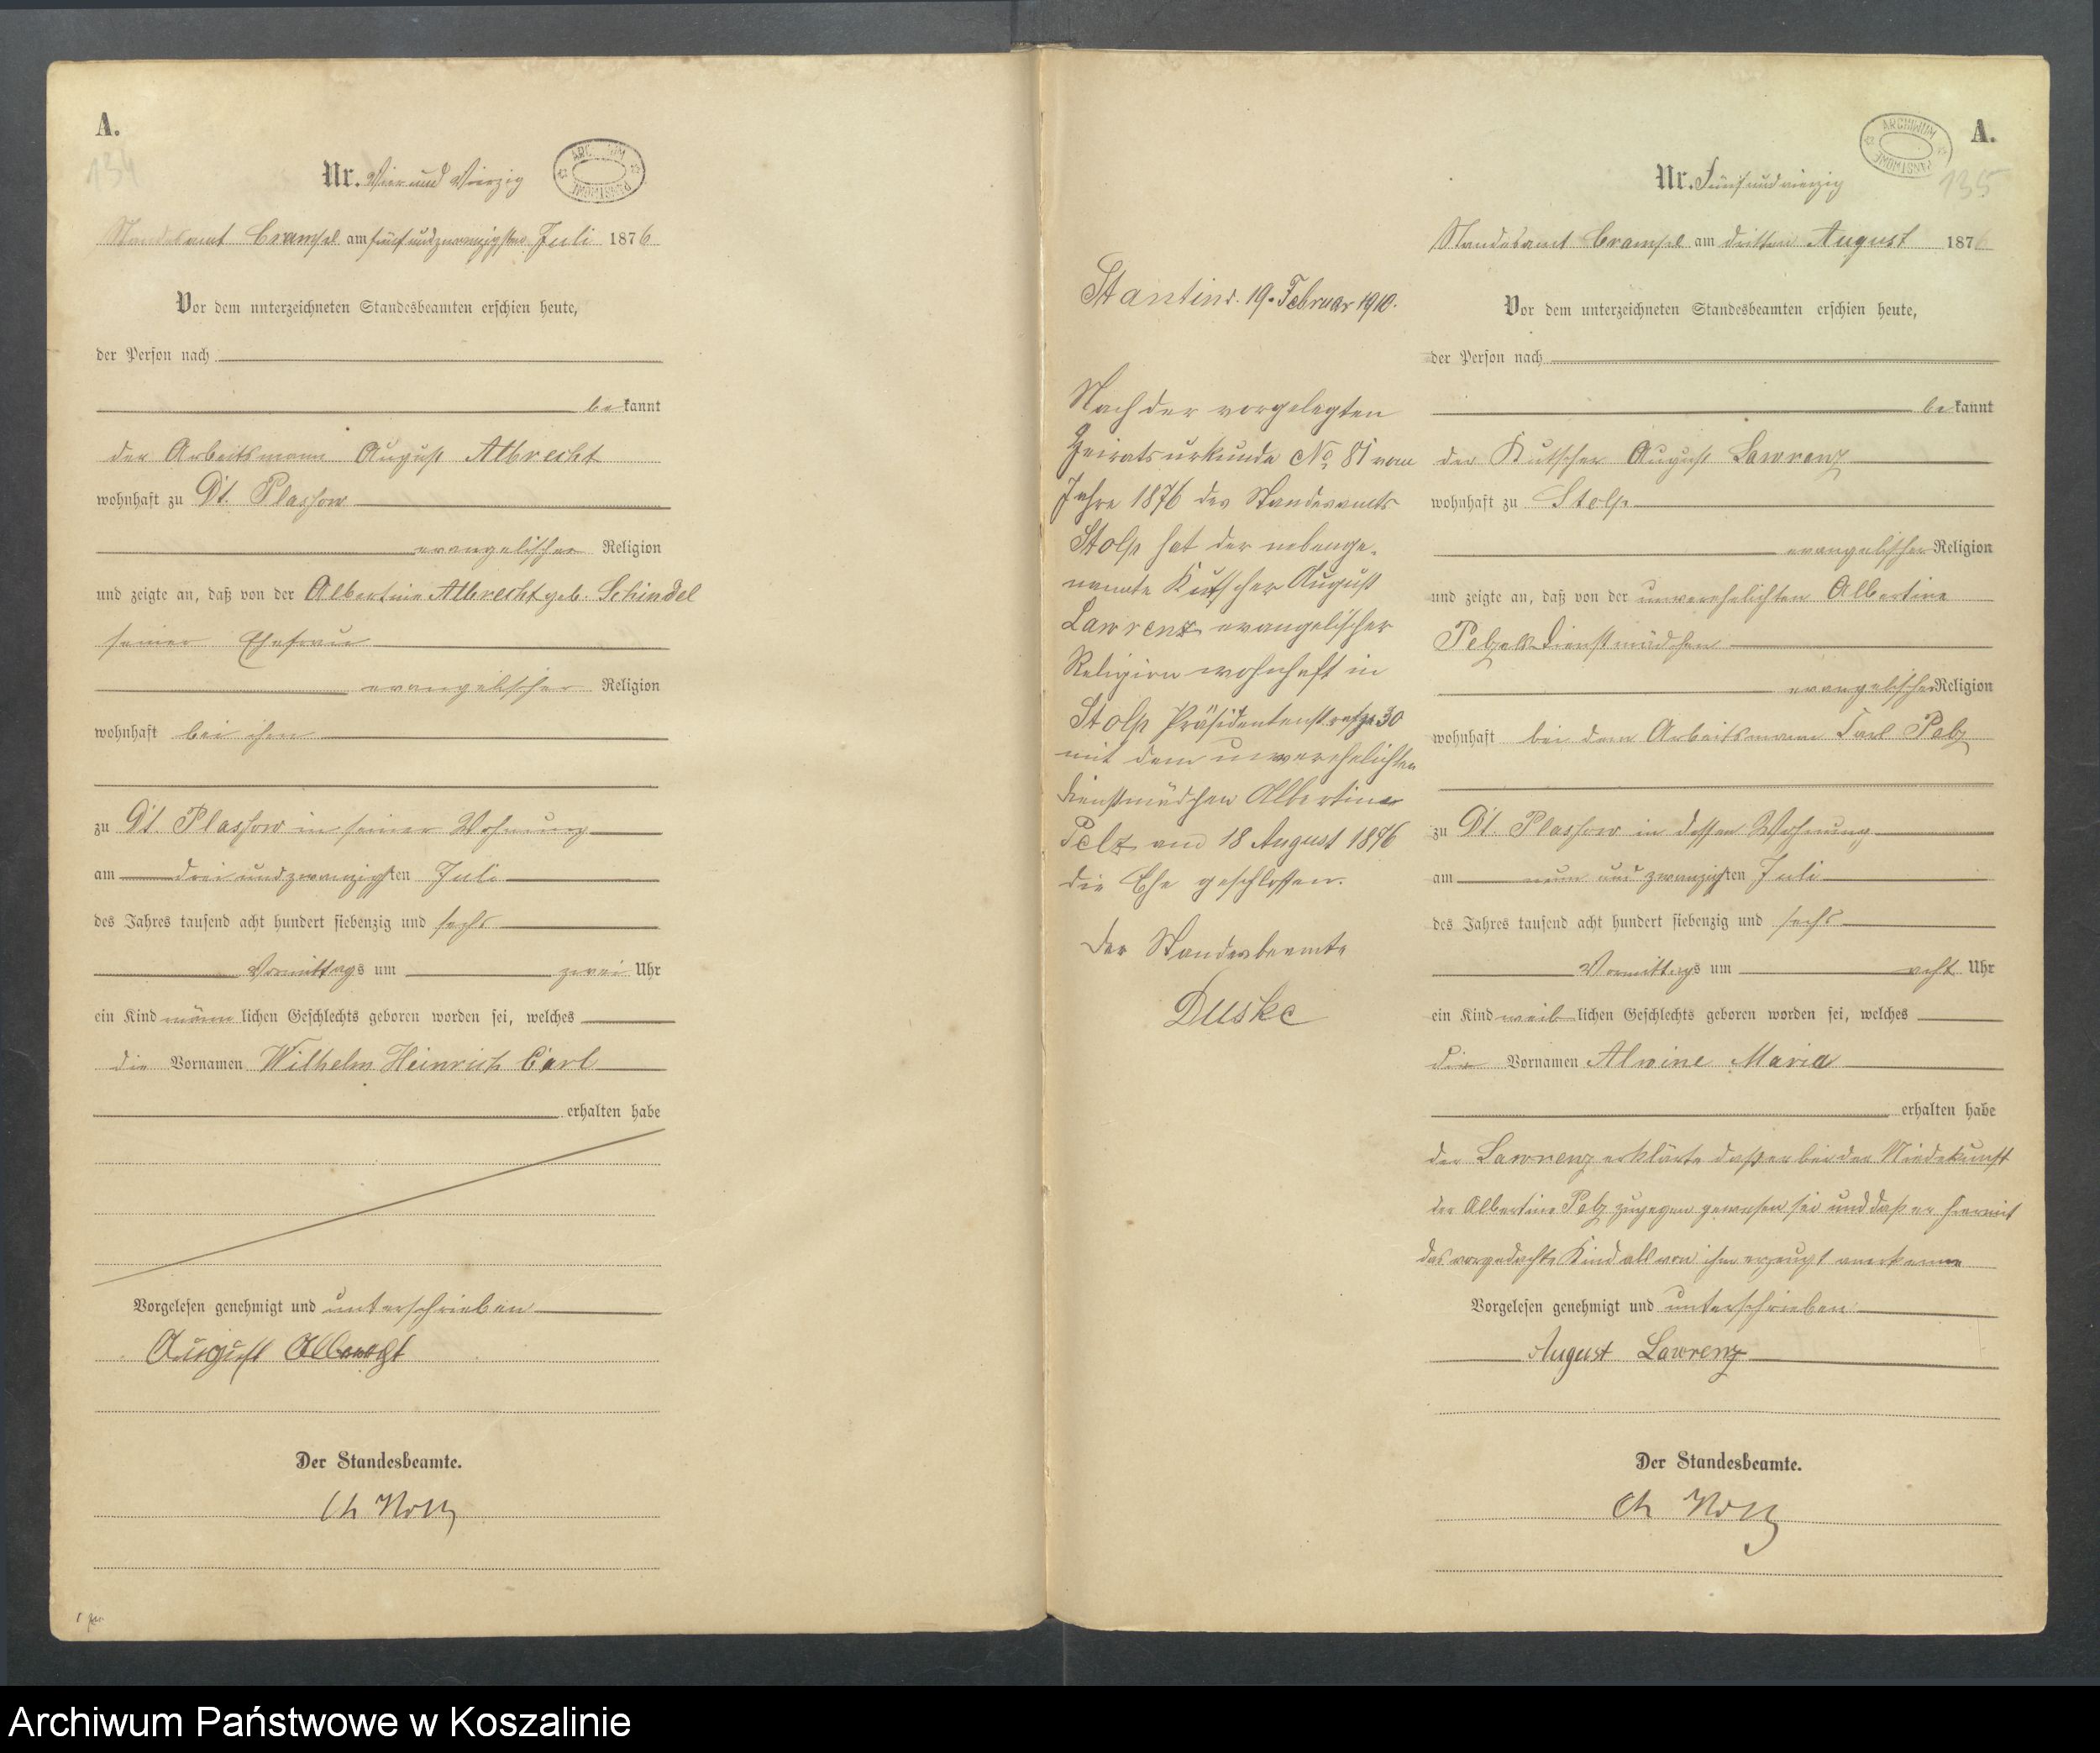 A.
134
Nr. Vier und Vierzig
ARCHIWUM PAŃSTWOWE
Standesamt Crampe am fünfundzwanzigsten Juli 1876
Vor dem unterzeichneten Standesbeamten erschien heute,
der Person nach
bekannt
der Arbeitsmann August Albrecht
wohnhaft zu Dt. Plassow
evangelischer Religion
und zeigte an, daß von der Albertine Albrecht geb. Schindel
seiner Ehefrau
evangelischer Religion
wohnhaft bei ihm
zu Dt. Plassow in seiner Wohnung
am drei und zwanzigsten Juli
des Jahres tausend acht hundert siebenzig und sechs
Vormittags um zwei Uhr
ein Kind männlichen Geschlechts geboren worden sei, welches
die Vornamen Wilhelm Heinrich Carl
erhalten habe
Vorgelesen genehmigt und unterschrieben
August Albrecht
Der Standesbeamte.
Stantin d. 19. Februar 1910.
Nach der vorgelegten
Heiratsurkunde No 81 vom
Jahre 1876 des Standesamts
Stolp hat der nebenge-
nannte Kutscher August
Lawrenz evangelischer
Religion wohnhaft in
Stolp Präsidentenstraße 30
mit dem unverehelichten
Dienstmädchen Albertine
Pelz am 18 August 1876
die Ehe geschlossen.
Der Standesbeamte
Duske
A.
135
Nr. Fünfundvierzig
ARCHIWUM PAŃSTWOWE
Standesamt Crampe am dritten August 1876
Vor dem unterzeichneten Standesbeamten erschien heute,
der Person nach
bekannt
der Kutscher August Lawrenz
wohnhaft zu Stolp
evangelischer Religion
und zeigte an, daß von der unverehelichten Albertine
Pelz Dienstmädchen
evangelischer Religion
wohnhaft bei dem Arbeitsmann Carl Pelz
zu Dt. Plassow in dessen Wohnung
am neun und zwanzigsten Juli
des Jahres tausend acht hundert siebenzig und sechs
Vormittags um acht Uhr
ein Kind weiblichen Geschlechts geboren worden sei, welches
die Vornamen Alwine Maria
erhalten habe
der Lawrenz erklärte daß er bei der Niederkunft
der Albertine Pelz zugegen gewesen sei und daß er hiermit
das vorgedachte Kind als von ihm erzeugt anerkenne
Vorgelesen genehmigt und unterschrieben
August Lawrenz
Der Standesbeamte.
Archiwum Państwowe w Koszalinie